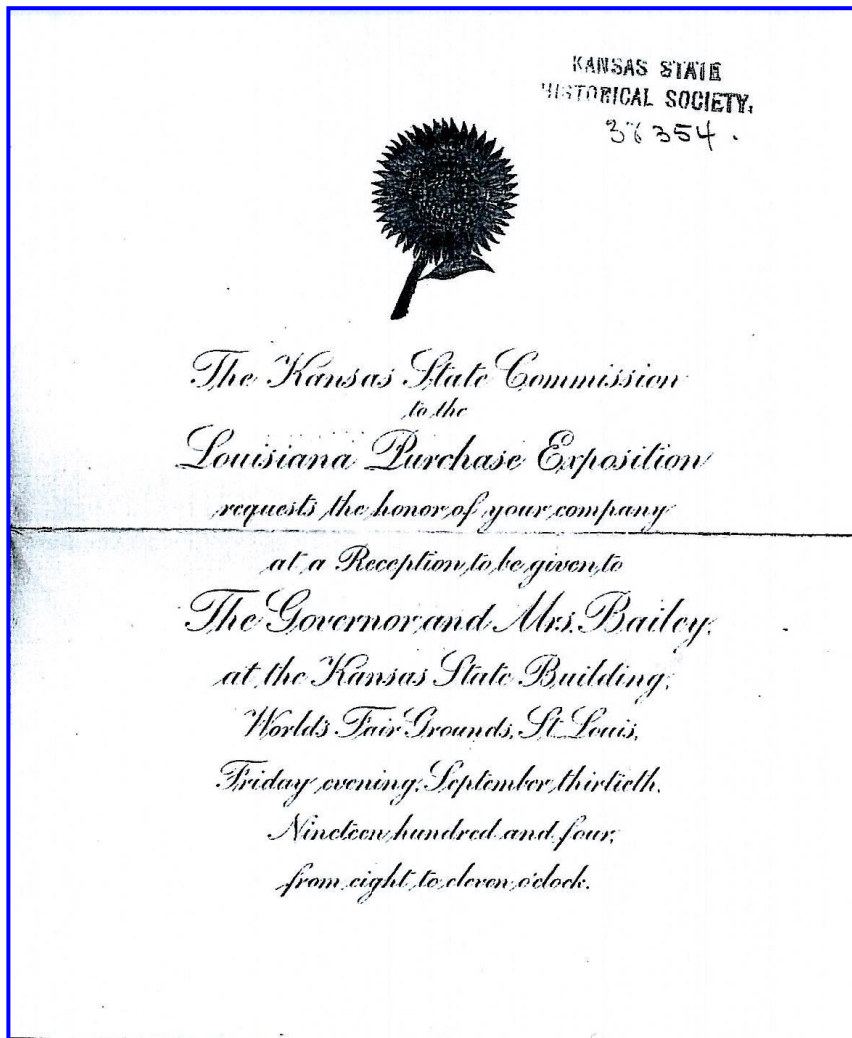 KANSAS STATE
HISTORICAL SOCIETY.
The Kansas State Commission
to the
Louisiana Purchase Exposition
requests the honor of your company
at a Reception to be given to
The Governor and Mrs. Bailey,
at the Kansas State Building,
World's Fair Grounds, St. Louis,
Friday evening, September thirtieth,
Nineteen hundred and four,
from eight to eleven o'clock.